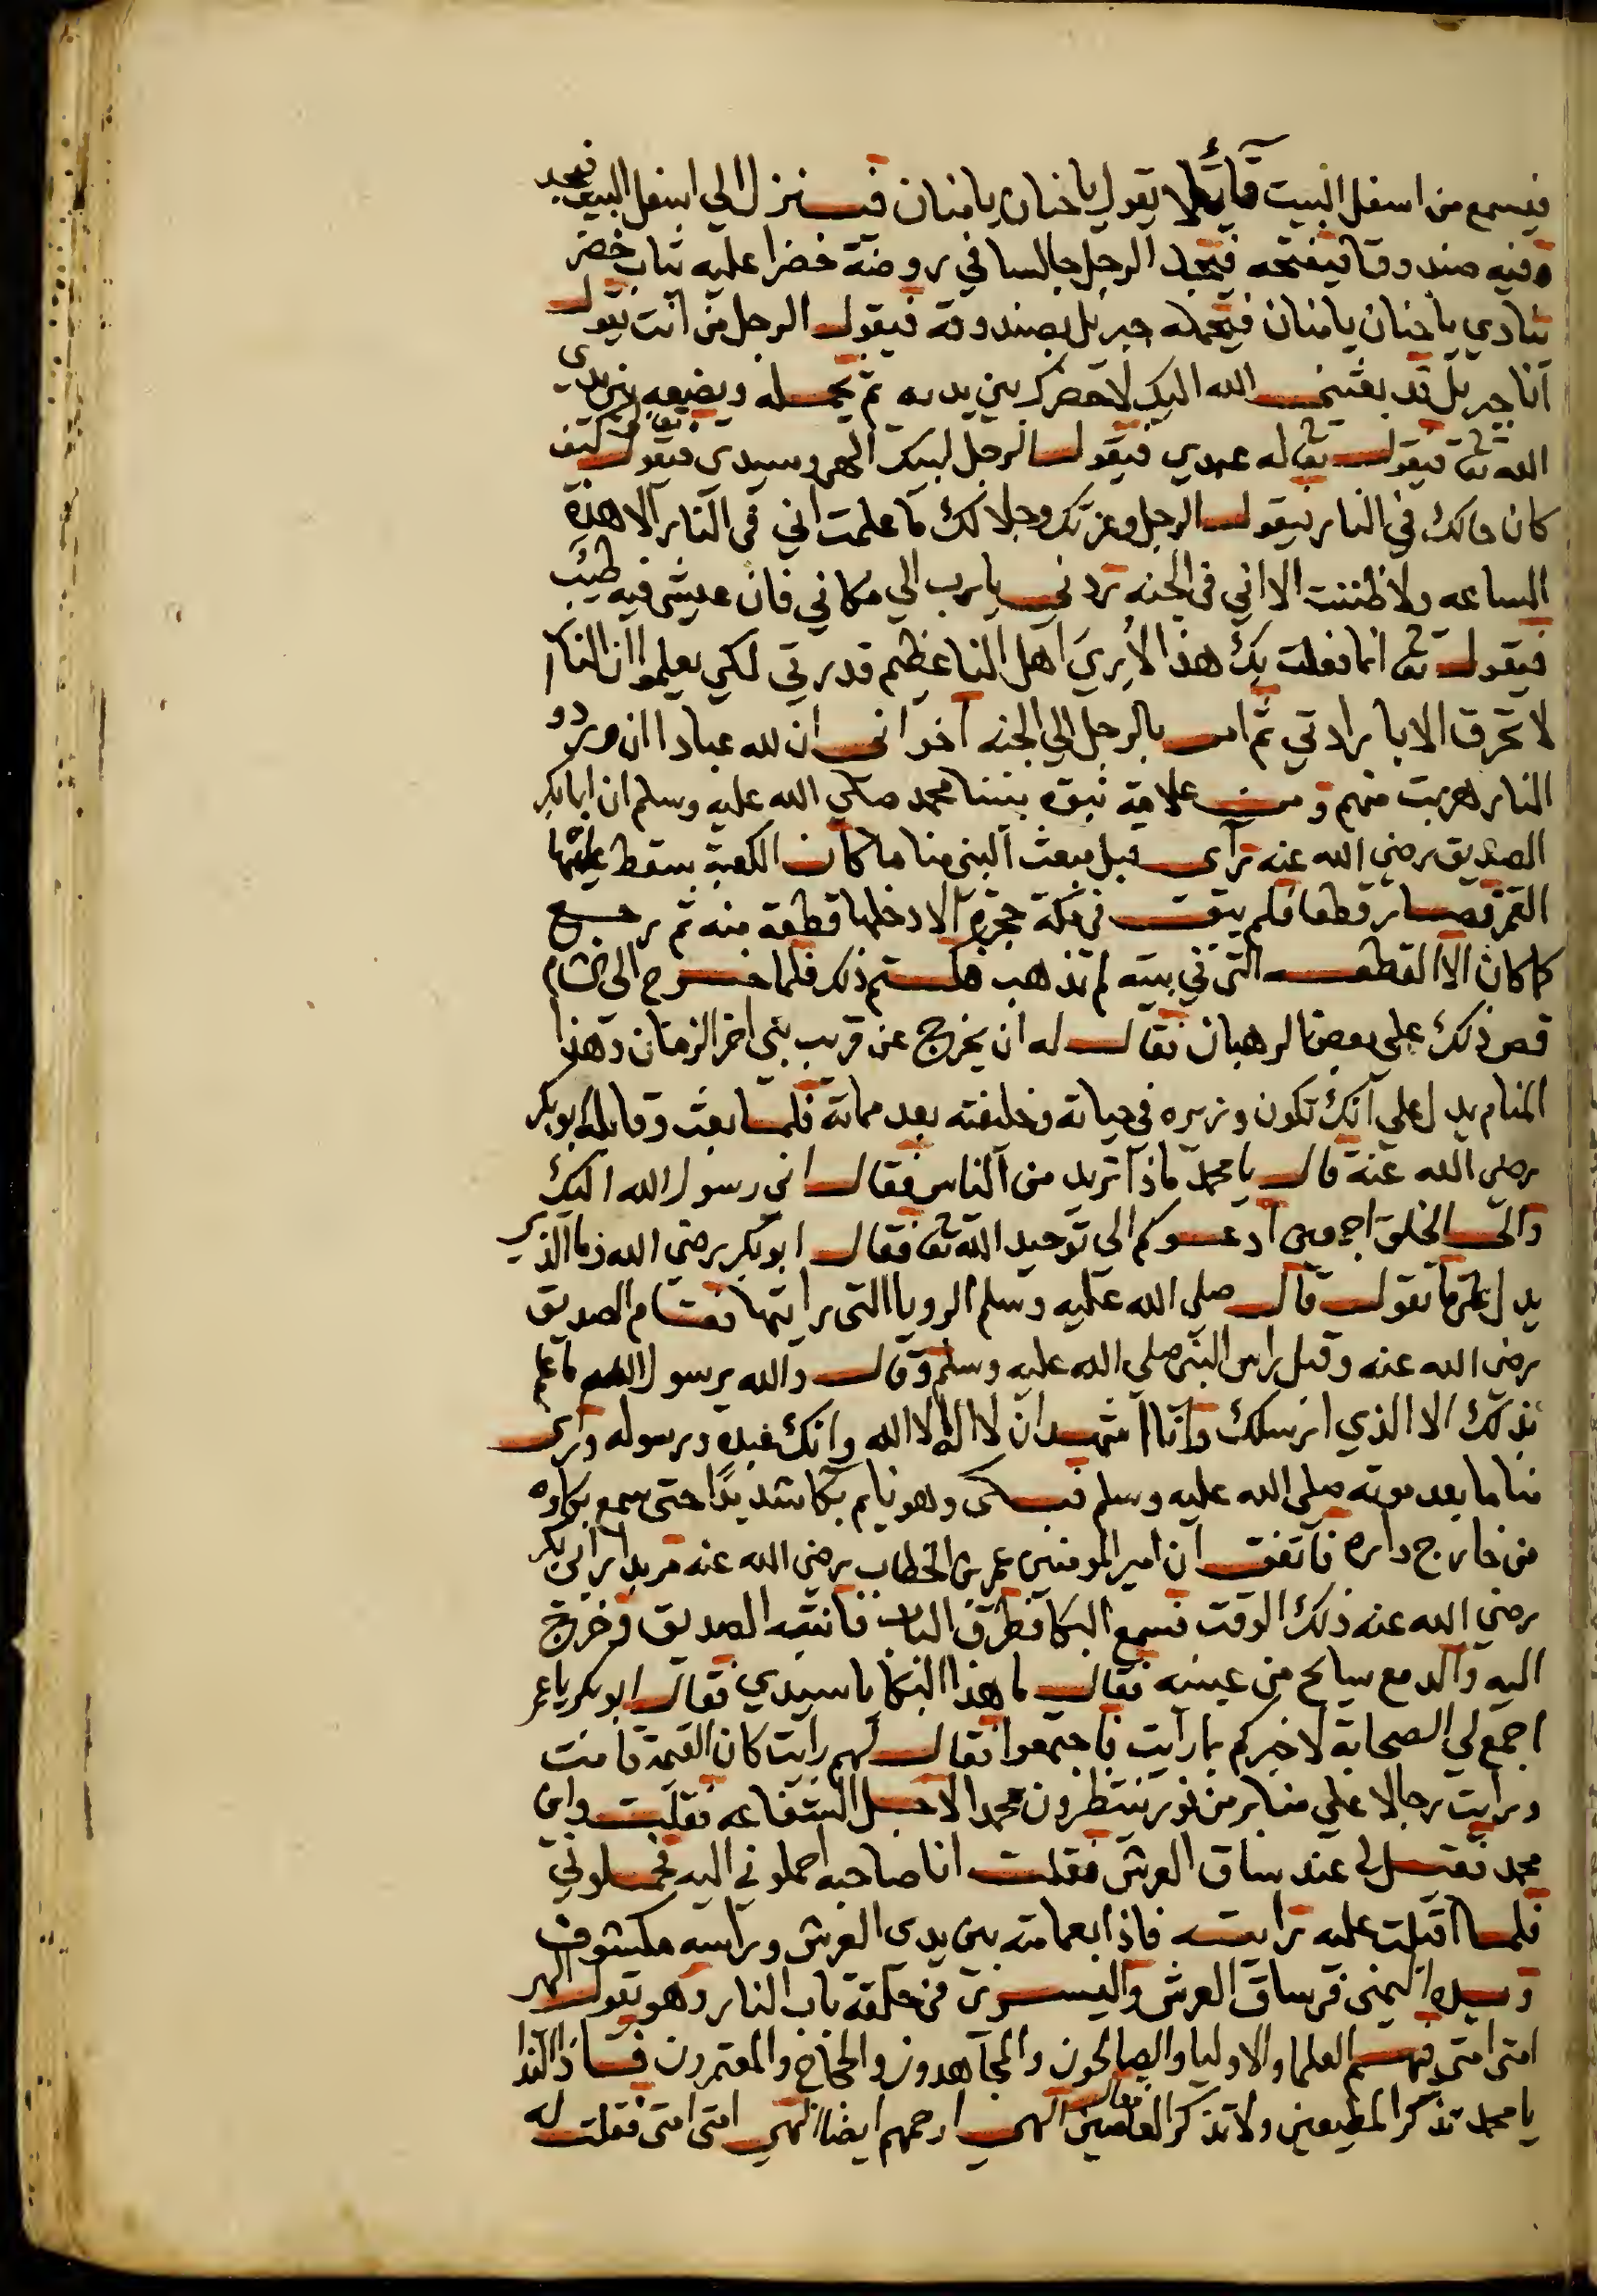 فيسمع من اسفل البيت قائلا يقول يا حنان يا منان فينزل الى اسفل البيت فيجد
فيه صندوقا فيفتحه فيجد الرجل جالسا في روضة خضرا عليه ثياب خضر
ينادي يا حنان يا منان فيحمله جبريل بصندوقه فيقول الرجل من انت يقول
انا جبريل قد بعثني الله اليك لاحضرك بين يديه ثم يحمله ويضعه بين يدي
الله تع فيقول تع له عبدي فيقول الرجل لبيك الهي وسيدي فيقول تع كيف
كان حالك في النار فيقول الرجل وعزتك وجلالك ما علمت اني في النار الا هذه
الساعه ولا ظننت الا اني في الجنه ردني يا رب الي مكاني فان عيشي فيه طيب
فيقول تع انما فعلت بك هذا لأري اهل النار عظيم قدرتي لكي يعلموا ان النار
لا تحرق الا بارادتي ثم امر بالرجل الي الجنه اخواني ان لله عبادا ان وردو
النار هربت منهم ومن علامة نبوة نبينا محمد صلى الله عليه وسلم ان ابا بكر
الصديق رضي الله عنه رآى قبل مبعث النبي مناما كان الكعبة سقط عليها
القمر فصار قطعا فلم يبق في مكة حجرة الا دخلها قطعة منه ثم رجع
كما كان الا القطعه التي في بيته لم تذهب فكتم ذلك فلما خرج الى الشام
قص ذلك علي بعض الرهبان فقال له ان يخرج عن قريب نبي اخر الزمان وهذا
المنام يدل علي انك تكون وزيره في حياته وخليفته بعد مماته فلما بعث وقابله ابو بكر
رضي الله عنه قال يا محمد ماذا تريد من الناس فقال اني رسول الله اليك
والى الخلق اجمعين ادعوكم الى توحيد الله تع فقال ابو بكر رضي الله فما الذي
يدل على ما تقول قال صلى الله عليه وسلم الرويا التي رايتها فقام الصديق
رضي الله عنه وقبل راس النبي صلى الله عليه وسلم وقال والله يرسول الله ما علم
بذلك الا الذي ارسلك وانا اشهد ان لا اله الا الله وانك عبده ورسوله ورأى
مناما بعد موته صلى الله عليه وسلم فبكى وهو نايم بكا شديدا حتى سمع بكاوه
من خارج داره فاتفق ان امير المومنين عمر بن الخطاب رضي الله عنه مر بدار ابي بكر
رضي الله عنه ذلك الوقت فسمع البكا فطرق الباب فانتبه الصديق وخرج
اليه والدمع سايح من عينيه فقال ما هذا البكا يا سيدي فقال ابو بكر يا عمر
اجمع لي الصحابة لاخبركم بما رأيت فاجتمعوا فقال لهم رايت كان القيمة قامت
ورايت رجالا علي منابر من نور ينتظرون محمد الاجل الشفاعه فقلت واين
محمد فقيل لي عند ساق العرش فقلت انا صاحبه احملوني اليه فحملوني
فلما اقبلت عليه رايته فاذا بعمامته بين يدي العرش وراسه مكشوف
وبيده اليمنى في ساق العرش واليسرى في حلقة باب النار وهو يقول الهي
امتي امتي فيهم العلما والاوليا والصالحون والمجاهدون والحجاج والمعتمرون فاذا الندا
يا محمد تذكر المطيعين ولا تذكر العاصين فقال الهي ارحمهم ايضا الهي امتي امتي فقلت له